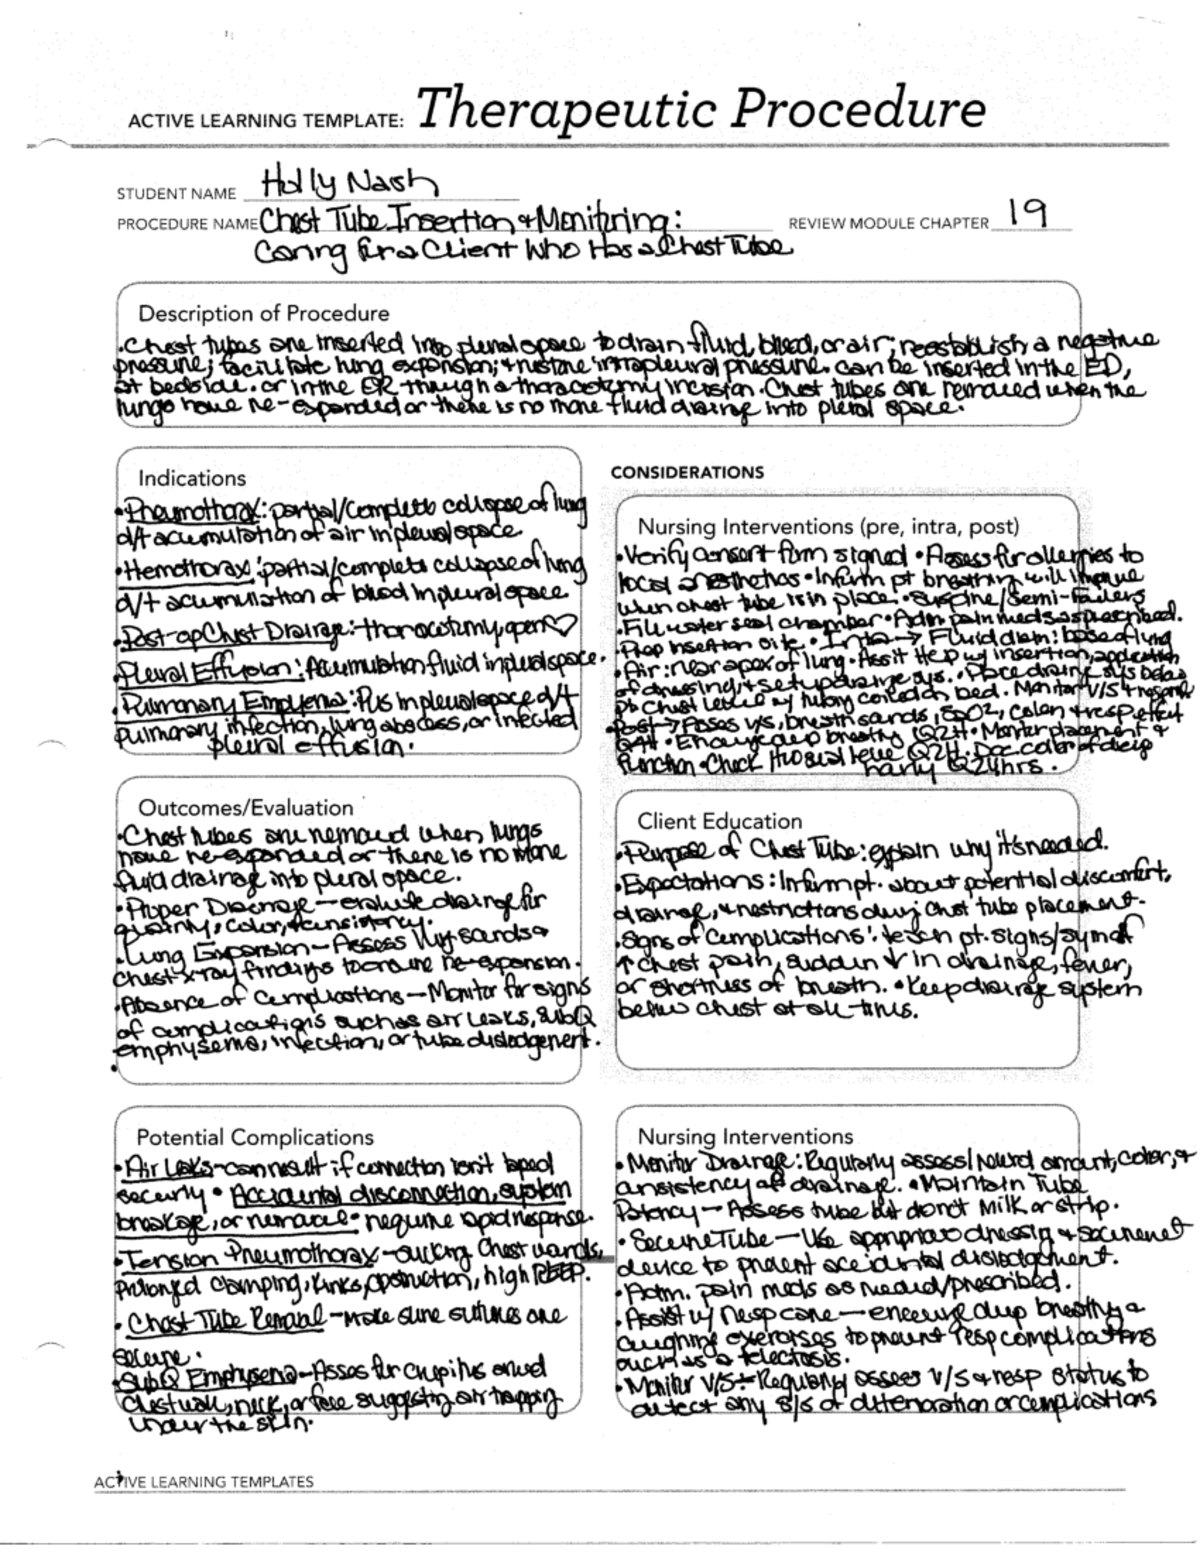 ACTIVE LEARNING TEMPLATE: Therapeutic Procedure
STUDENT NAME Holly Nash
PROCEDURE NAME Chest Tube Insertion + Monitoring:
Caring for a Client Who Has a Chest Tube
REVIEW MODULE CHAPTER 19
Description of Procedure
• Chest tubes are inserted into pleural space to drain fluid, blood, or air; reestablish a negative
pressure; facilitate lung expansion; + restore intrapleural pressure. can be inserted in the ED,
at bedside. or in the OR through a thoracotomy incision. Chest tubes are removed when the
lungs have re-expanded or there is no more fluid drainage into pleral space.
Indications
• Pneumothorax: partial/complete collapse of lung
d/t accumulation of air in pleural space
• Hemothorax: partial/complete collapse of lung
d/t accumulation of blood in pleural space
• Post-op Chest Drainage: thoracotomy, open ♡
Pleural Effusion: Accumulation fluid in pleural space.
• Pulmonary Empyema: Pus in pleural space d/t
pulmonary infection, lung abscess, or infected
pleural effusion.
CONSIDERATIONS
Nursing Interventions (pre, intra, post)
• Verify consent form signed • Assess for allergies to
local anesthetics • Inform pt breathing will improve
when chest tube is in place. • Supine/Semi-Fowlers
• Fill water seal chamber • Adm pain meds as prescribed.
• Prep insertion site. • Intra → Fluid drain: base of lung
• Air: near apex of lung • Assist Hcp w/ insertion, application
of dressing, + set up drainage sys. • Place drainage sys below
pt chest level w/ tubing coiled on bed. Monitor V/S + response
Post → Assess v/s, breath sounds, SpO2, color + resp effort
Q4H • Encourage deep breathing Q2H • Monitor placement +
function • Check H2O seal level Q2H. Doc color of
Q24hrs.
Outcomes/Evaluation
• Chest tubes are removed when lungs
have re-expanded or there is no more
fluid drainage into pleral space.
• Proper Drainage — evaluate drainage for
quantity, color, + consistency.
• Lung Expansion — Assess lung sounds +
Chest x-ray findings to ensure re-expansion.
• Absence of Complications — Monitor for signs
of complications such as air leaks, SubQ
emphysema, infection, or tube dislodgement.
•
Client Education
• Purpose of Chest Tube: explain why it's needed.
• Expectations: Inform pt. about potential discomfort,
drainage, + restrictions during chest tube placement.
• Signs of Complications: teach pt. signs/sym of
↑ chest pain, sudden ↓ in drainage, fever,
or shortness of breath. • Keep drainage system
below chest at all times.
Potential Complications
• Air Leaks - can result if connection isn't taped
securly • Accidental disconnection, system
breakage, or removal • require rapid response.
• Tension Pneumothorax - sucking Chest wounds,
Prolonged clamping, kinks, obstruction, high PEEP.
• Chest Tube Removal - make sure sutures are
secure.
• SubQ Emphysema - Asses for crepitus around
chest wall, neck, or face suggesting air trapping
under the skin.
Nursing Interventions
• Monitor Drainage: Regularly assess/record amount, color, +
consistency of drainage. • Maintain Tube
Patency - Assess tube but do not milk or strip.
• Secure Tube - Use appropriate dressing + securement
device to prevent accidental dislodgement.
• Adm. pain meds as needed/prescribed.
• Assist w/ resp care — encourage deep breathing +
coughing exercises to prevent resp complications
such as atelectasis.
• Monitor V/S - Regularly assess V/S + resp status to
detect any s/s of deterioration or complications
ACTIVE LEARNING TEMPLATES